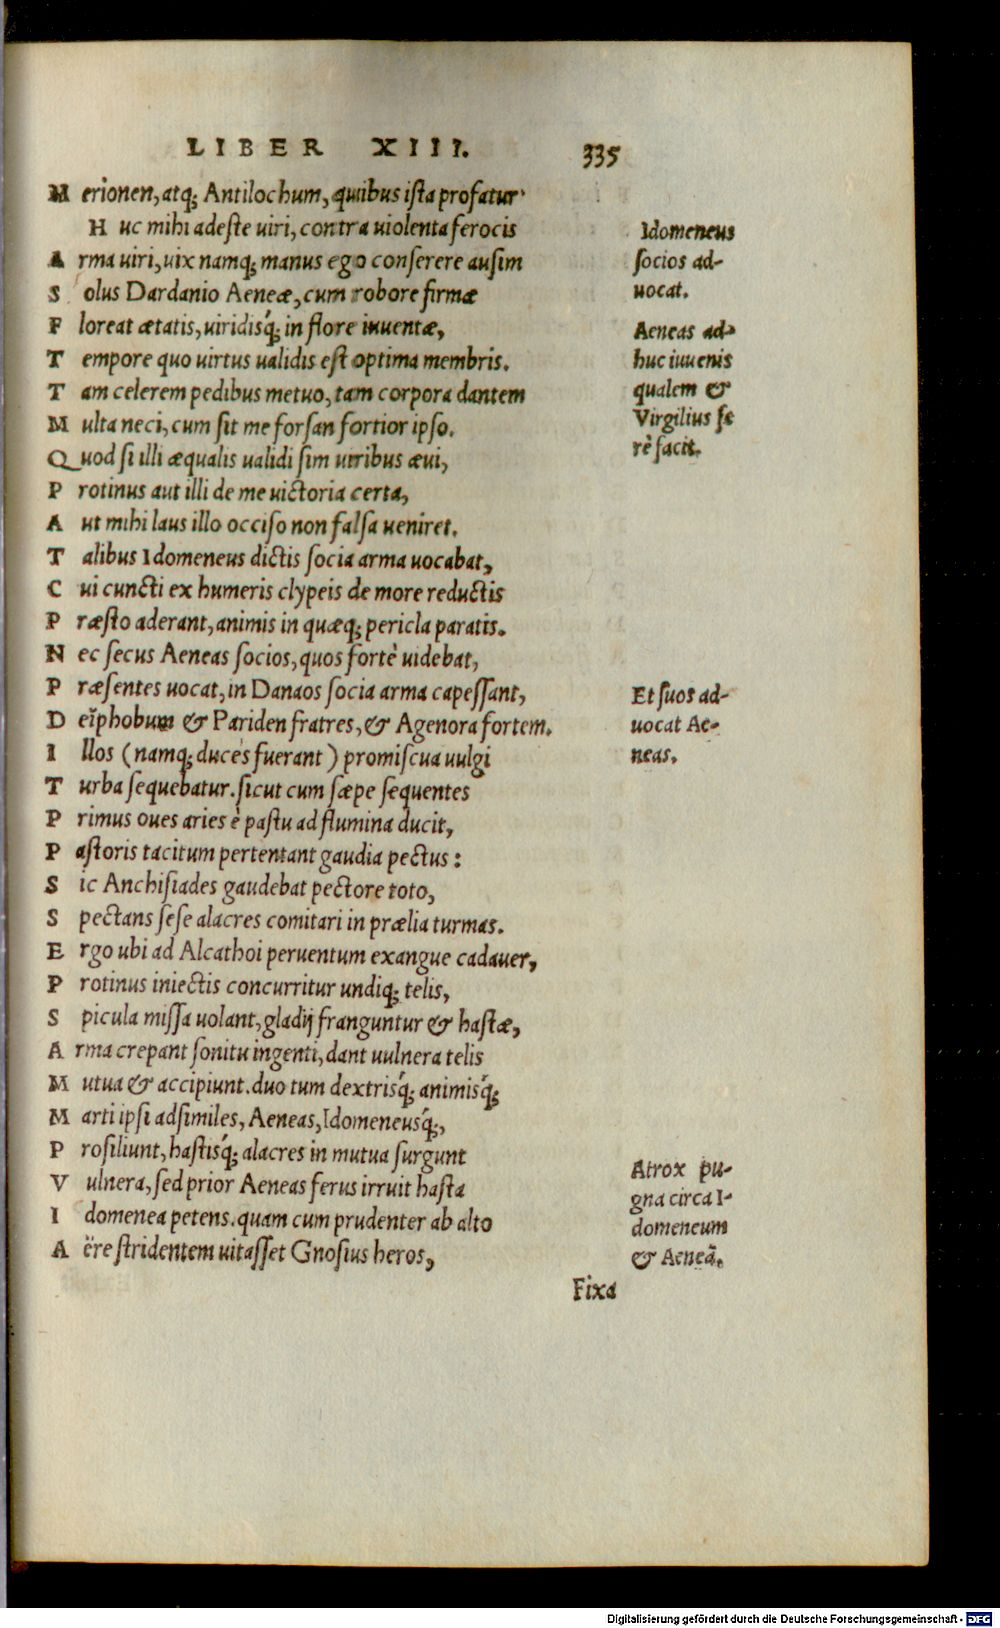 LIBER XIII. 335
Merionen, atq; Antilochum, quibus ista profatur.
Huc mihi adeste uiri, contra uiolenta ferocis
Arma uiri, uix namq; manus ego conserere ausim
Solus Dardanio Aeneæ, cum robore firmæ
Floreat ætatis, uiridisq́; in flore iuuentæ,
Tempore quo uirtus ualidis est optima membris.
Tam celerem pedibus metuo, tam corpora dantem
Multa neci, cum sit me forsan fortior ipso.
Quod si illi æqualis ualidi sim uiribus æui,
Protinus aut illi de me uictoria certa,
Aut mihi laus illo occiso non falsa ueniret.
Talibus Idomeneus dictis socia arma uocabat,
Cui cuncti ex humeris clypeis de more reductis
Præsto aderant, animis in quæq; pericla paratis.
Nec secus Aeneas socios, quos fortè uidebat,
Præsentes uocat, in Danaos socia arma capessant,
Deïphobum & Pariden fratres, & Agenora fortem.
Illos (namq; duces fuerant) promiscua uulgi
Turba sequebatur. sicut cum sæpe sequentes
Primus oues aries è pastu ad flumina ducit,
Pastoris tacitum pertentant gaudia pectus:
Sic Anchisiades gaudebat pectore toto,
Spectans sese alacres comitari in prælia turmas.
Ergo ubi ad Alcathoi peruentum exangue cadauer,
Protinus iniectis concurritur undiq; telis,
Spicula missa uolant, gladij franguntur & hastæ,
Arma crepant sonitu ingenti, dant uulnera telis
Mutua & accipiunt. duo tum dextrisq́; animisq́;
Marti ipsi adsimiles, Aeneas, Idomeneusq́;,
Prosiliunt, hastisq́; alacres in mutua surgunt
Vulnera, sed prior Aeneas ferus irruit hasta
Idomenea petens. quam cum prudenter ab alto
Aëre stridentem uitasset Gnosius heros,
Fixa
Idomeneus
socios ad-
uocat.
Aeneas ad-
huc iuuenis
qualem &
Virgilius fe
rè facit.
Et suos ad-
uocat Ae-
neas.
Atrox pu-
gna circa I-
domeneum
& Aeneā.
Digitalisierung gefördert durch die Deutsche Forschungsgemeinschaft - DFG